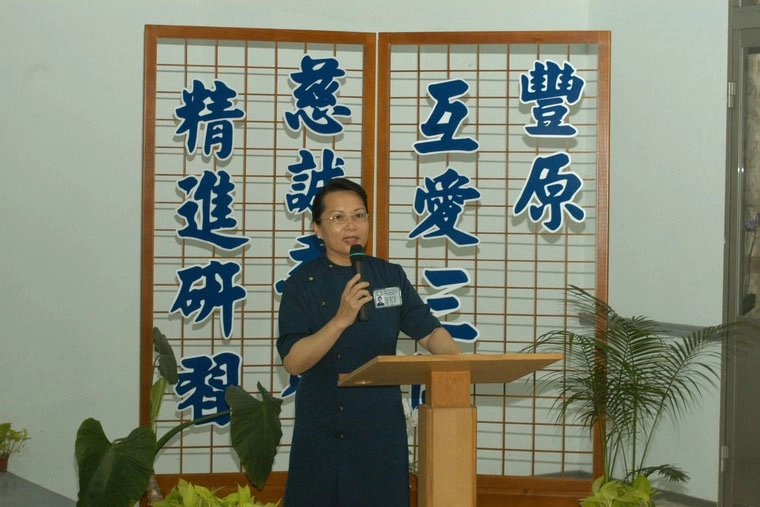 豐原
互愛三
慈誠
精進研習